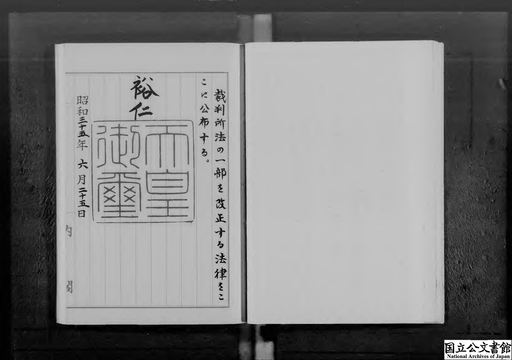 裁判所法の一部を改正する法律をこ
こに公布する。
裕仁
天皇御璽
昭和三十五年六月二十五日
内閣
国立公文書館
National Archives of Japan